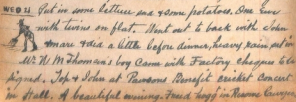 WED 21 Put in some lettuce and some potatoes. Sow
with twins on flat. Went out to back with John
mare & did a little before dinner, heavy rain put in
Mr. W. M. Thomson's boy came with Factory cheques to
Top & John at Parsons Benefit cricket concert
in Hall. A beautiful evening. Fred